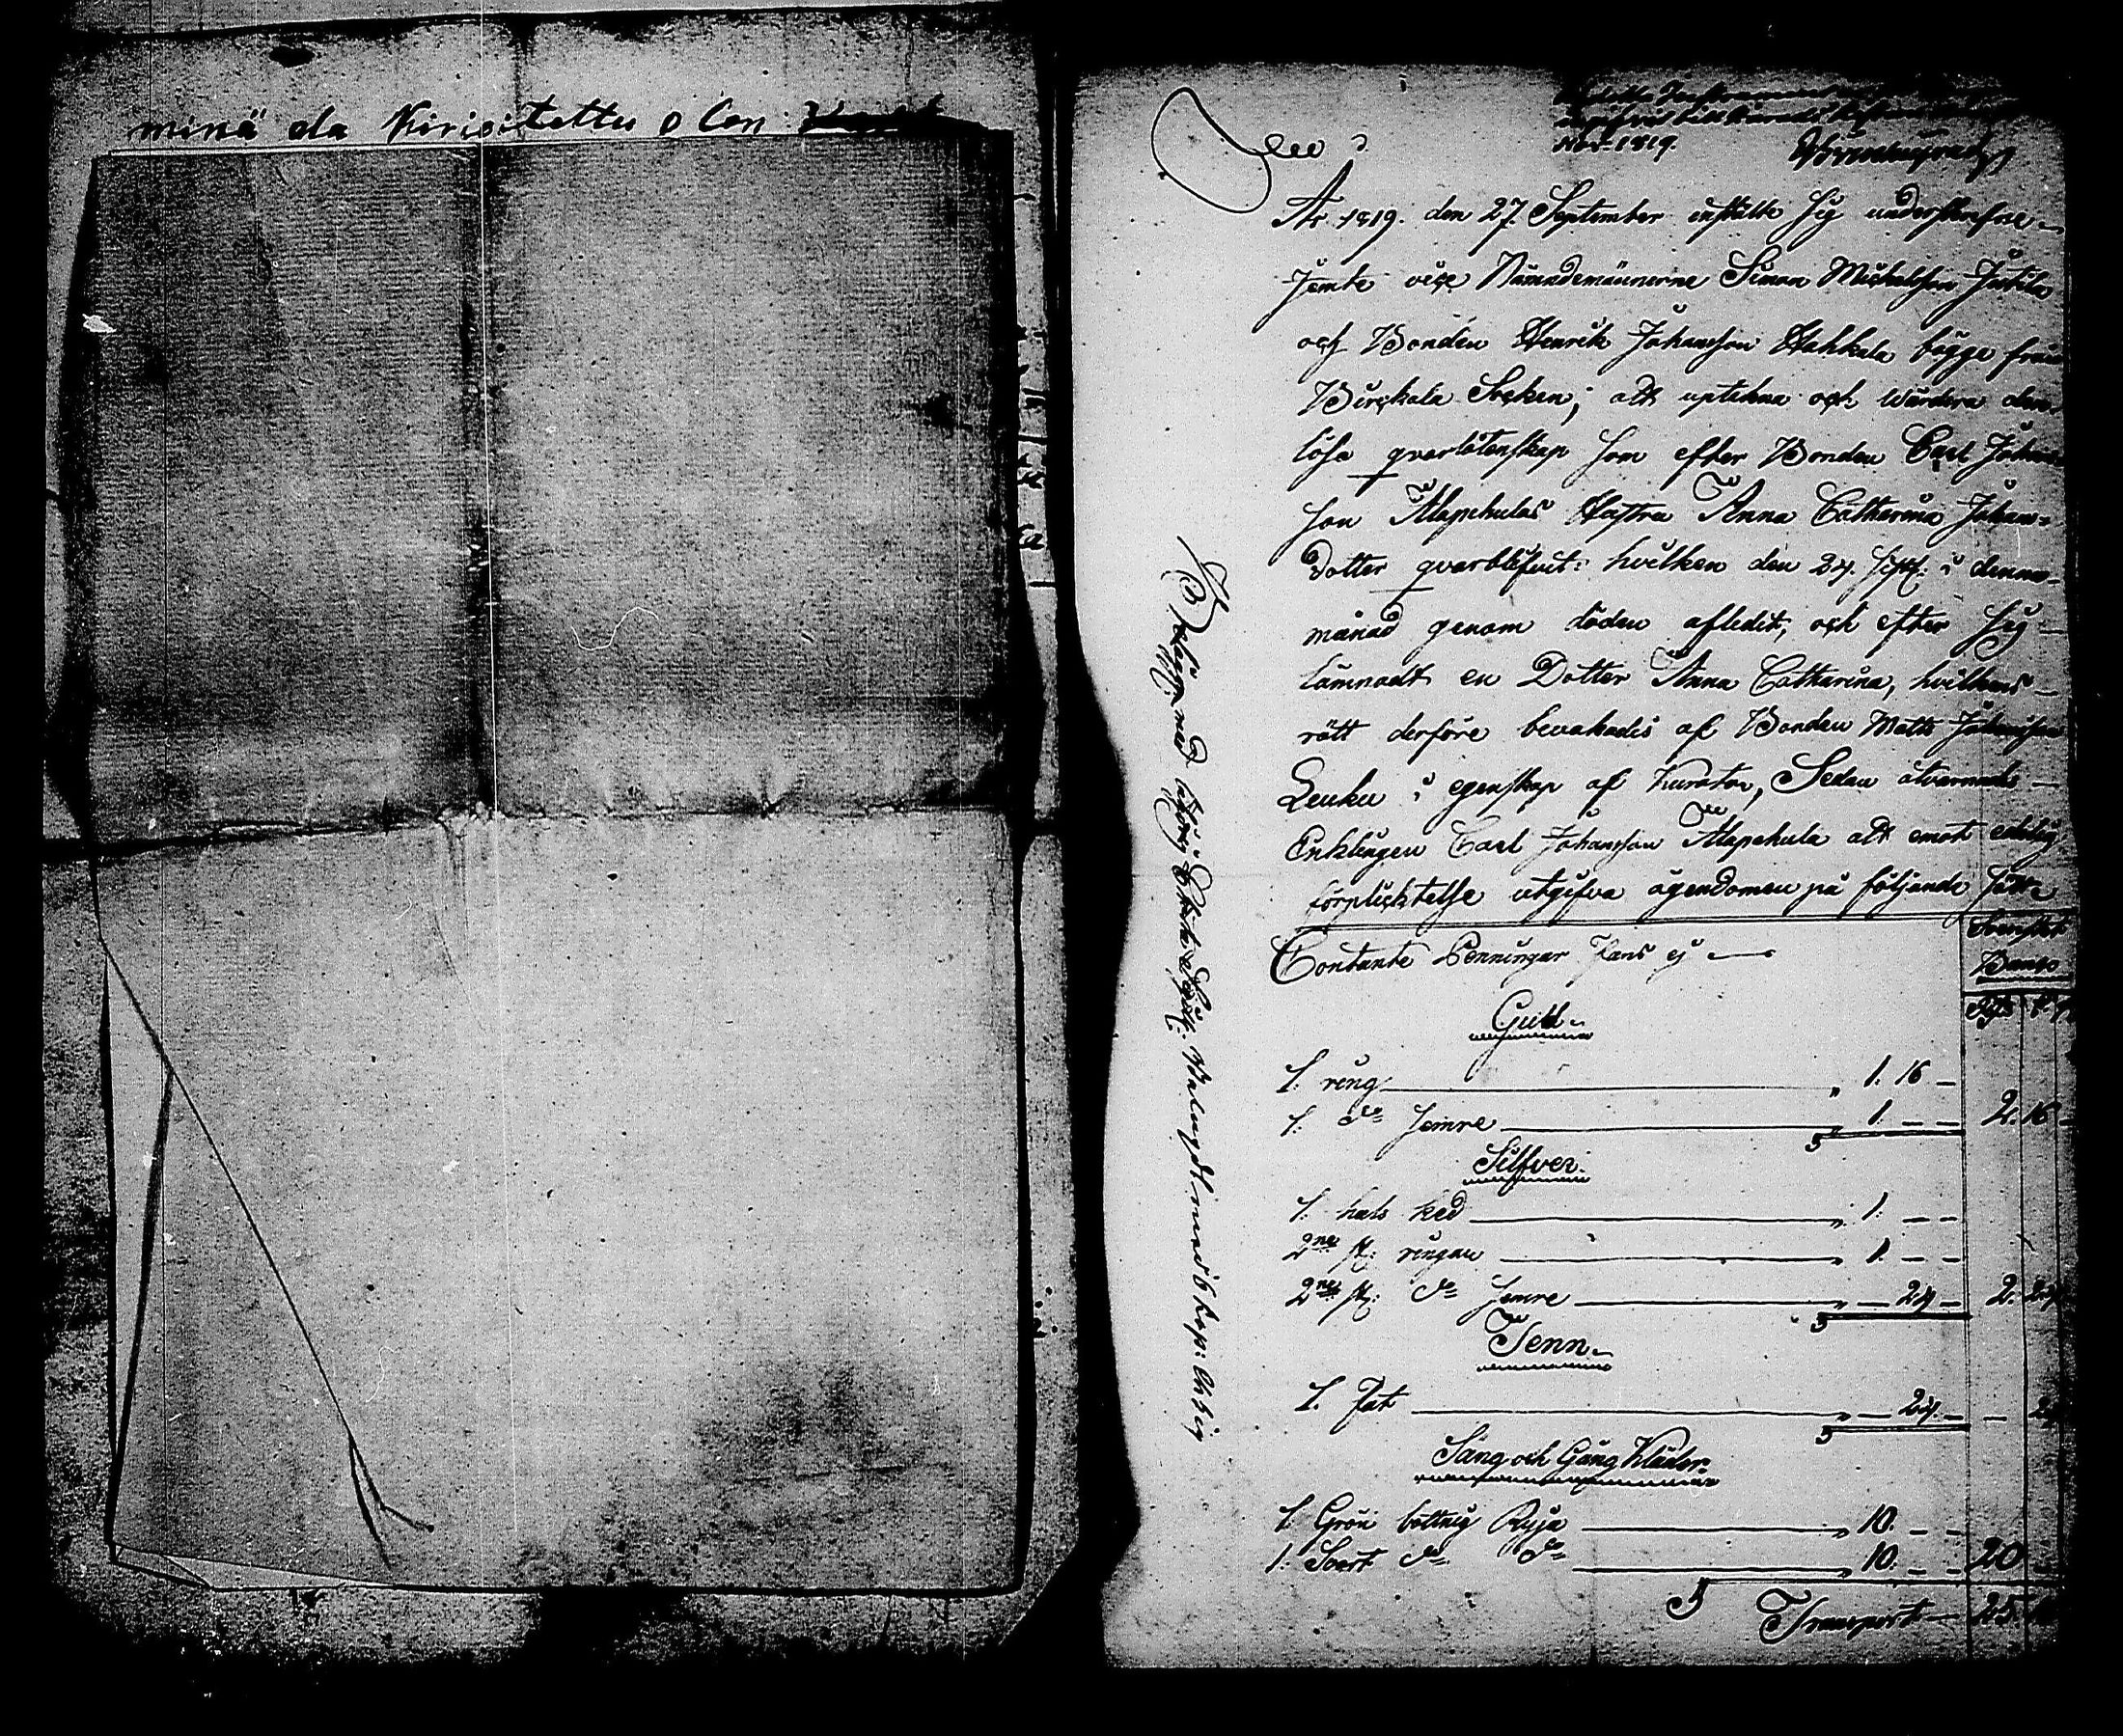 minä ola Kirioitettu olen
Nov: 1819.
År 1819. den 27 September instälte sig underskrefne
jemte vice Nämndemännerne Simon Michelsson Juttila
och Bonden Henrik Johansson Hahkala bägge från
Birckala Socken; att uptekna och wärdera den
lösa qvarlåtenskap som efter Bonden Carl Johans
son Alapehulas Hustru Anna Catharina Johans-
dotter qvarblifvit: hvilken den 24. sistl. i denna
månad genom döden afledit, och efter sig
lämnadt en Dotter Anna Catharina, hvilkens
rätt derföre bevakades af Bonden Matts Johansson
Leuku i egenskap af Kurator, Sedan åtvarnades
Enklingen Carl Johansson Alapehula att emot edelig
förplicktelse utgifva ägendomen på följande sätt:
Banco
Contante Penningar Fans ej
Guld
1. ring 1. 16 –
1. d:o semre 1. – – 2. 16
Silfver
1. hals ked 1. – –
2ne st: ringar 1. – –
2ne st: d:o semre – 24 – 2. 24
Tenn
1. Fat – 24 – – 24
Säng och Gång Kläder
1. Grön bottnig Ryja 10. – –
1. Svart d:o d:o 10. – – 20
Transport 25. 16
Belagd med 6 kop: